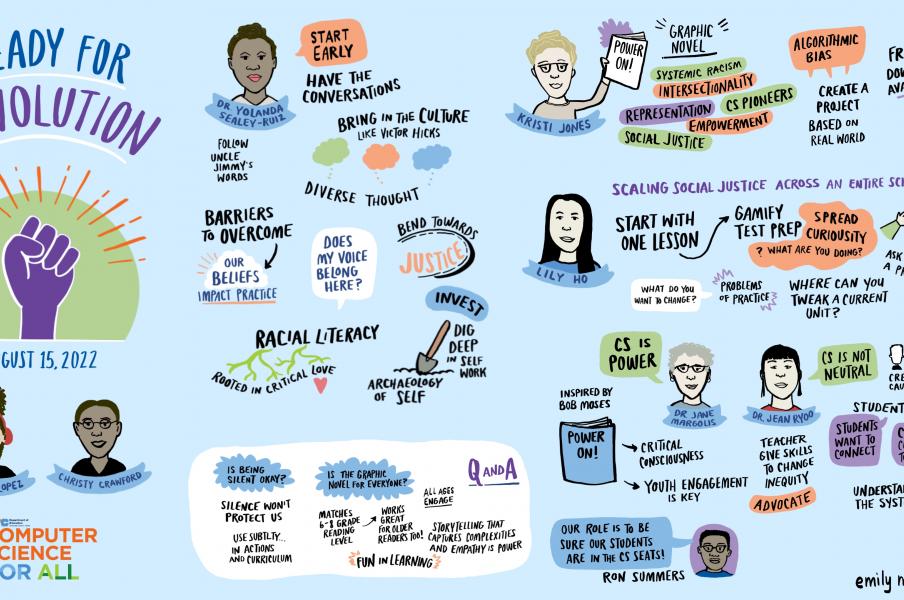 EADY FOR
OLUTION
GUST 15, 2022
LOPEZ
CHRISTY CRAWFORD
Department of
Education
OMPUTER
CIENCE
OR ALL
START
EARLY
HAVE THE
CONVERSATIONS
DR. YOLANDA
SEALEY-RUIZ
FOLLOW
UNCLE
JIMMY'S
WORDS
BRING IN THE CULTURE
LIKE VICTOR HICKS
DIVERSE THOUGHT
BARRIERS
TO OVERCOME
OUR
BELIEFS
IMPACT PRACTICE
DOES
MY VOICE
BELONG
HERE?
BEND TOWARDS
JUSTICE
INVEST
RACIAL LITERACY
ROOTED IN CRITICAL LOVE
DIG
DEEP
IN SELF
WORK
ARCHAEOLOGY
OF SELF
Q AND A
IS BEING
SILENT OKAY?
SILENCE WON'T
PROTECT US
USE SUBTLTY...
IN ACTIONS
AND CURRICULUM
IS THE GRAPHIC
NOVEL FOR EVERYONE?
MATCHES
6-8 GRADE
READING
LEVEL
WORKS
GREAT
FOR OLDER
READERS TOO!
ALL AGES
ENGAGE
FUN IN LEARNING
STORYTELLING THAT
CAPTURES COMPLEXITIES
AND EMPATHY IS POWER
KRISTI JONES
POWER
ON!
GRAPHIC
NOVEL
SYSTEMIC RACISM
INTERSECTIONALITY
REPRESENTATION
CS PIONEERS
EMPOWERMENT
SOCIAL JUSTICE
ALGORITHMIC
BIAS
CREATE A
PROJECT
BASED ON
REAL WORLD
FR
DOW
AVA
SCALING SOCIAL JUSTICE ACROSS AN ENTIRE SCH
LILY HO
START WITH
ONE LESSON
GAMIFY
TEST PREP
SPREAD
CURIOUSITY
? WHAT ARE YOU DOING?
ASK
A P
WHAT DO YOU
WANT TO CHANGE?
PROBLEMS
OF PRACTICE
WHERE CAN YOU
TWEAK A CURRENT
UNIT?
CS IS
POWER
DR. JANE
MARGOLIS
INSPIRED BY
BOB MOSES
POWER
ON!
CRITICAL
CONSCIOUSNESS
YOUTH ENGAGEMENT
IS KEY
DR. JEAN RYOO
CS IS NOT
NEUTRAL
TEACHER
GIVE SKILLS
TO CHANGE
INEQUITY
ADVOCATE
CRE
CAU
STUDENT
STUDENTS
WANT TO
CONNECT
UNDERSTAN
THE SYST
OUR ROLE IS TO BE
SURE OUR STUDENTS
ARE IN THE CS SEATS!
RON SUMMERS
emily m